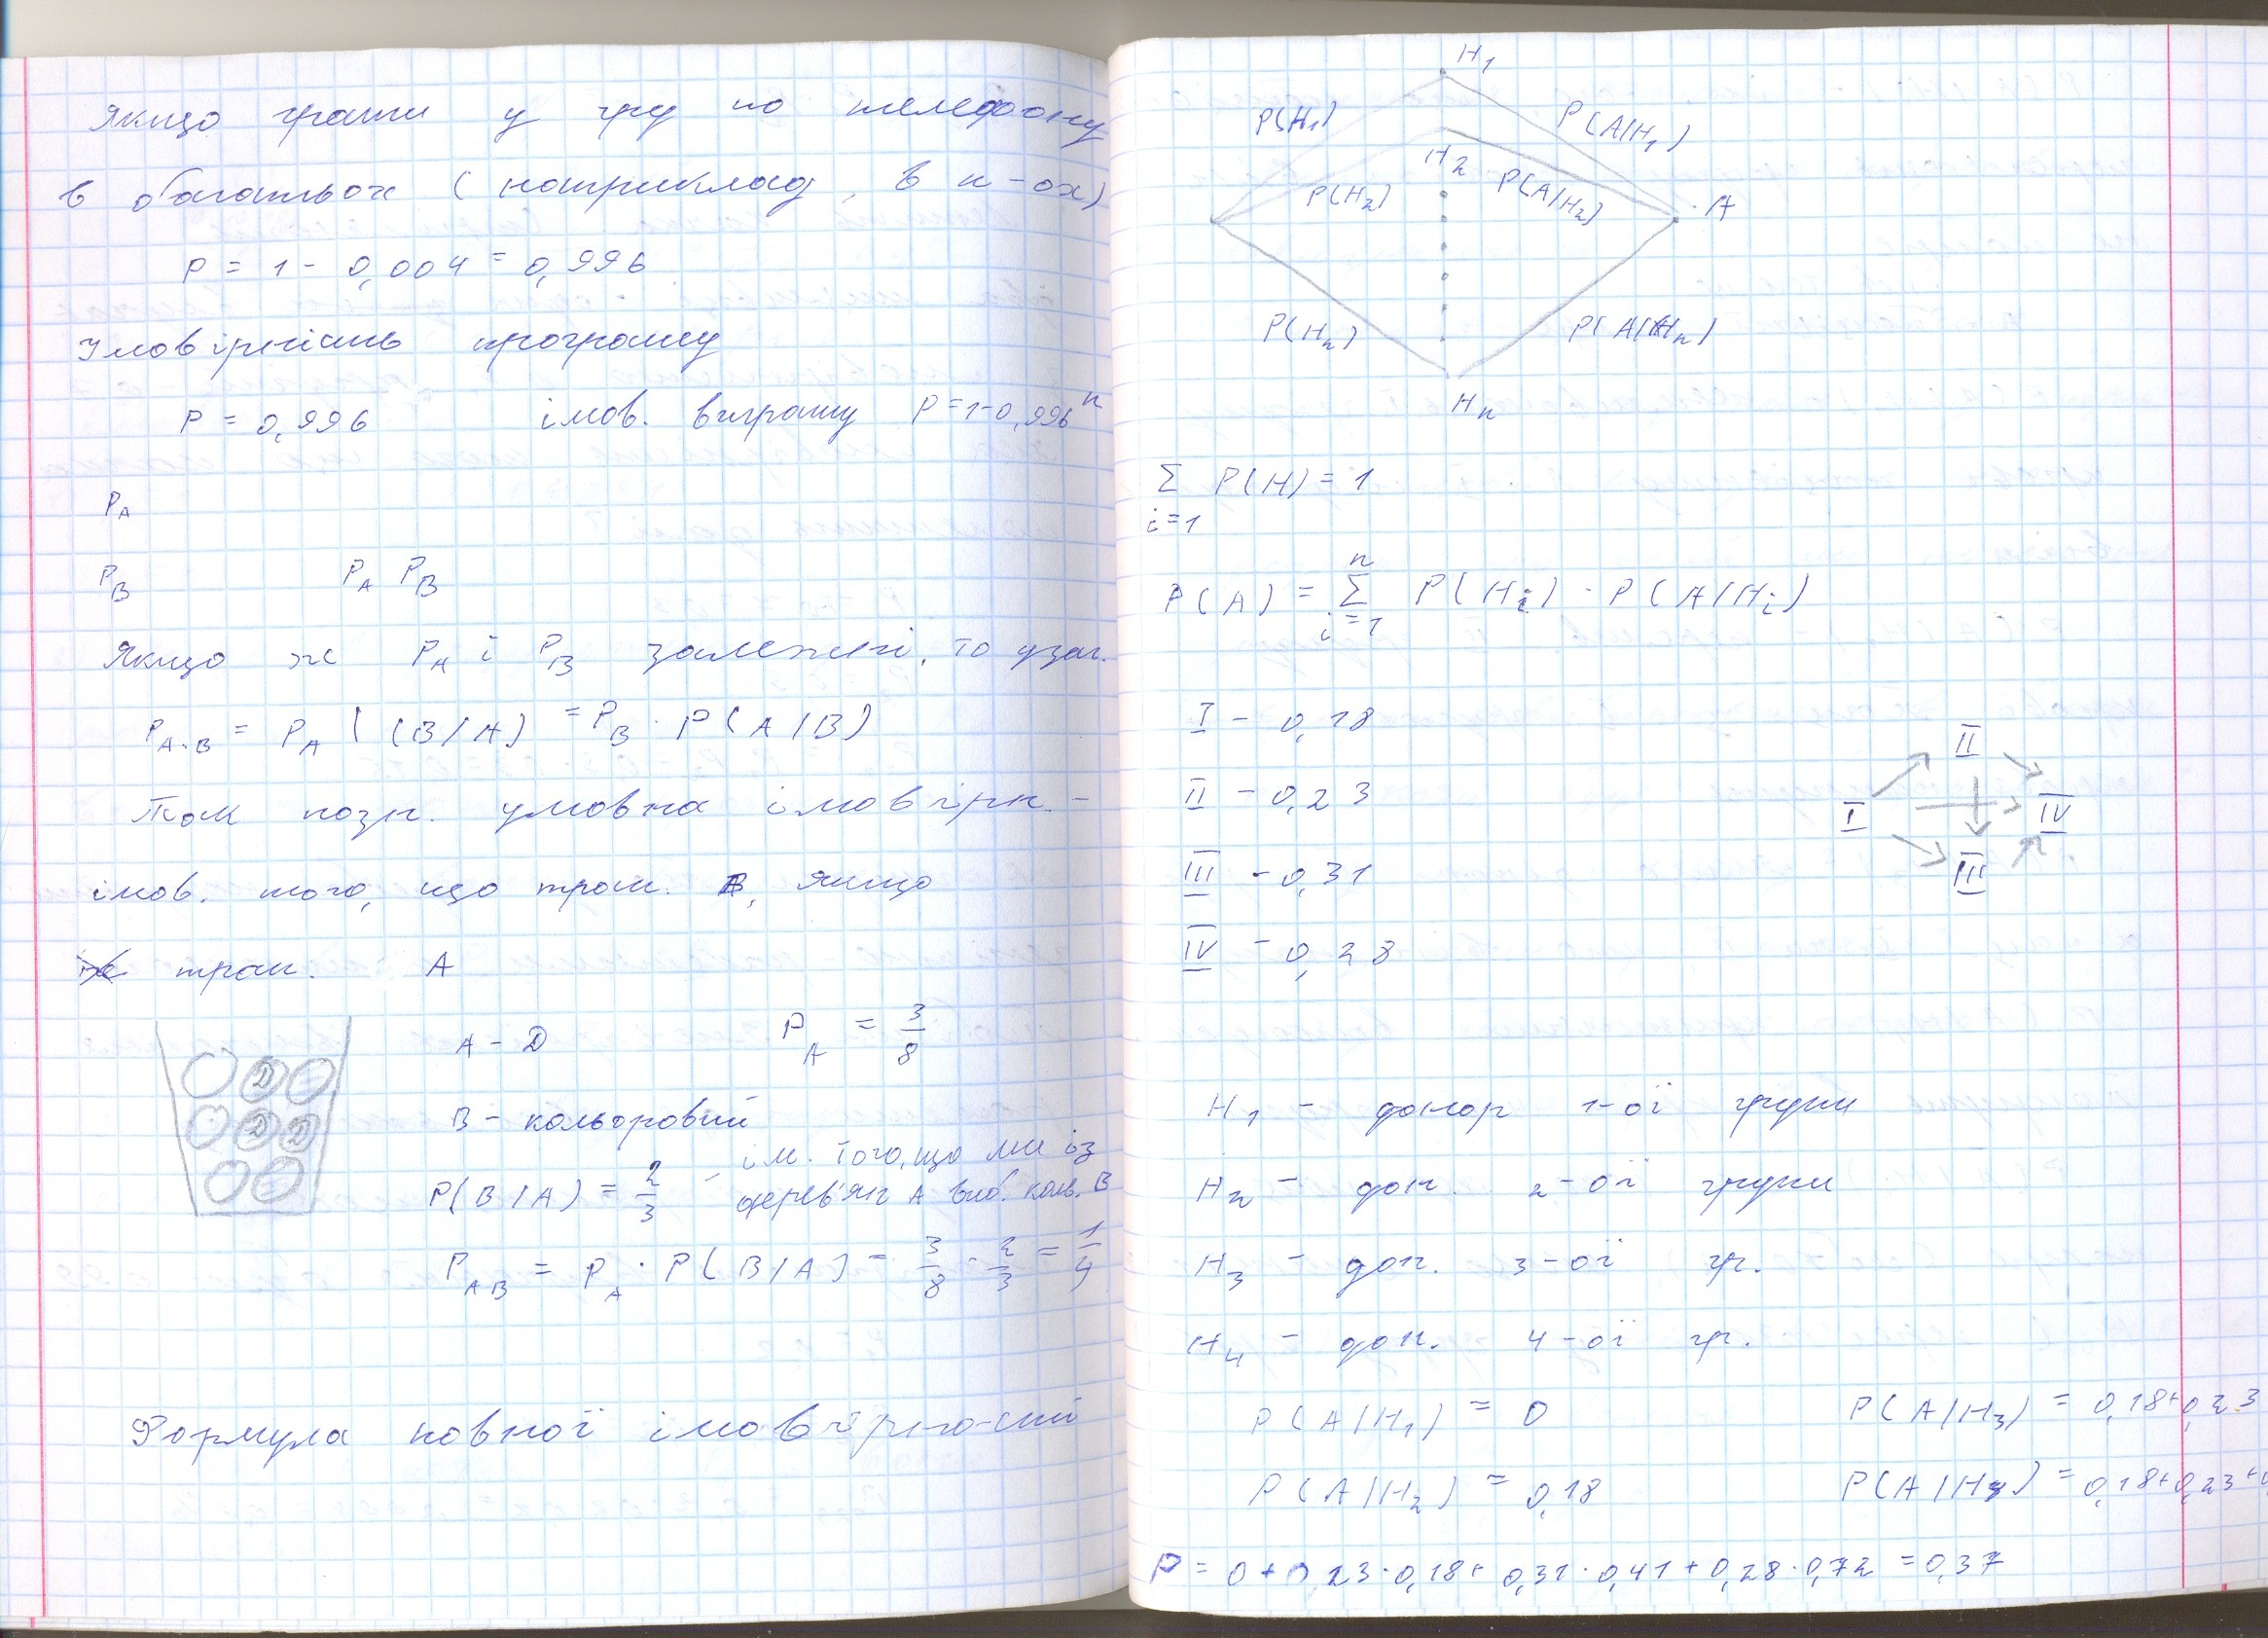 Якщо грати у гру по телефону
в багатьох (наприклад, в n-ох)
P = 1 - 0,004 = 0,996
Імовірність програшу
P = 0,996 імов. виграшу P = 1-0,996ⁿ
P_A
P_B P_A P_B
Якщо ж P_A і P_B залежні, то узаг.
P_A·B = P_A ((B/A) = P_B · P(A/B)
Так позн. умовна імовірн. -
імов. того, що трап. B, якщо
трап. A
A - D P_A = 3/8
B - кольоровий
P(B/A) = 2/3 - ім. того, що ми із
дерев'ян A виб. коль. B
P_AB = P_A · P(B/A) = 3/8 · 2/3 = 1/4
D
D D
Формула повної імовірності
H₁
P(H₁) P(A/H₁)
H₂
P(H₂) P(A/H₂) A
P(Hₙ) P(A/Hₙ)
Hₙ
Σ P(H) = 1
i=1
P(A) = Σ_{i=1}^{n} P(Hᵢ) · P(A/Hᵢ)
I - 0,18
II - 0,23
III - 0,31
IV - 0,28
II
I IV
III
H₁ - донор 1-ої групи
H₂ - дон. 2-ої групи
H₃ - дон. 3-ої гр.
H₄ - дон. 4-ої гр.
P(A/H₁) = 0 P(A/H₃) = 0,18+0,23
P(A/H₂) = 0,18 P(A/H₄) = 0,18+0,23+0,
P = 0 + 0,23·0,18 + 0,31·0,41 + 0,28·0,72 = 0,37